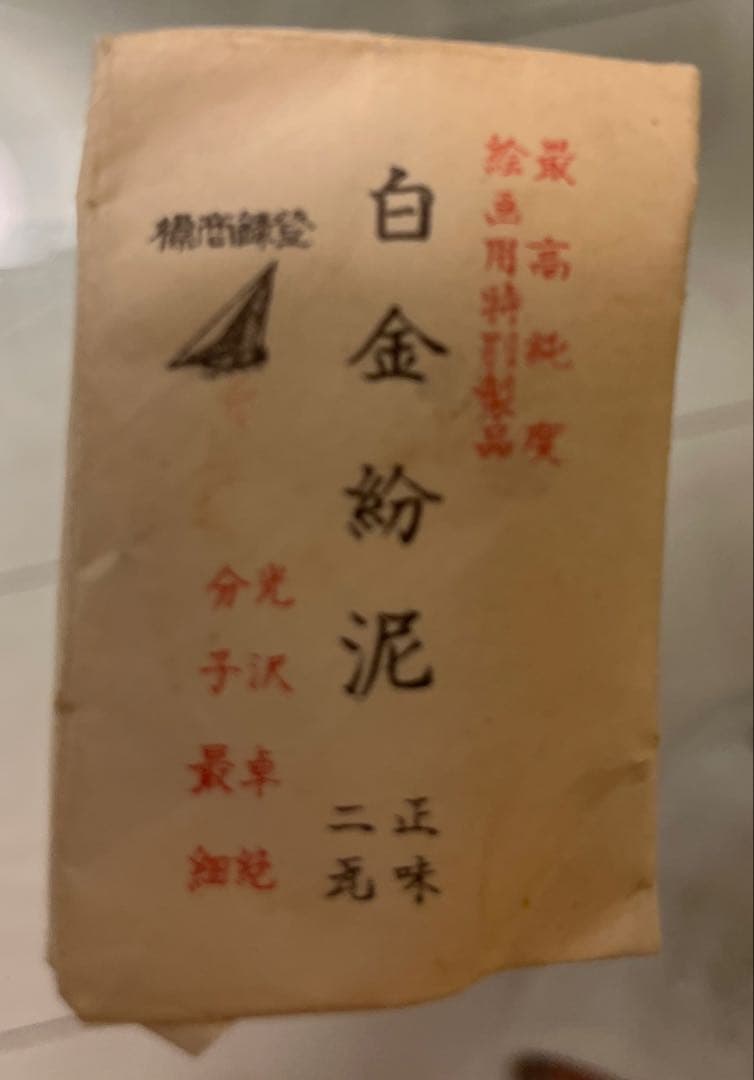 最高純度
絵画用特別製品
白金紛泥
正味
二瓦
登録商標
光沢卓絶
分子最細